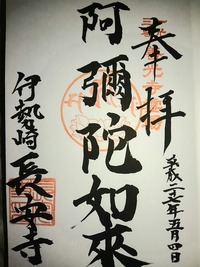 奉拝
平成二十七年五月四日
阿彌陀如來
伊勢崎
長安寺